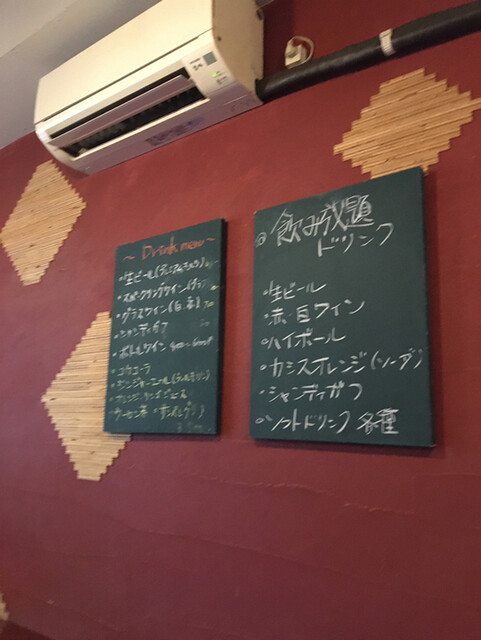 ~ Drink menu ~
・生ビール(プレミアムモルツ)
・スパークリングワイン(グラス)
・グラスワイン(白・赤)
・シャンディガフ
・ボトルワイン
・コカコーラ
・ジンジャーエール
・ウーロン茶
飲み放題
ドリンク
・生ビール
・赤・白ワイン
・ハイボール
・カシスオレンジ(ソーダ)
・シャンディガフ
・ソフトドリンク 各種